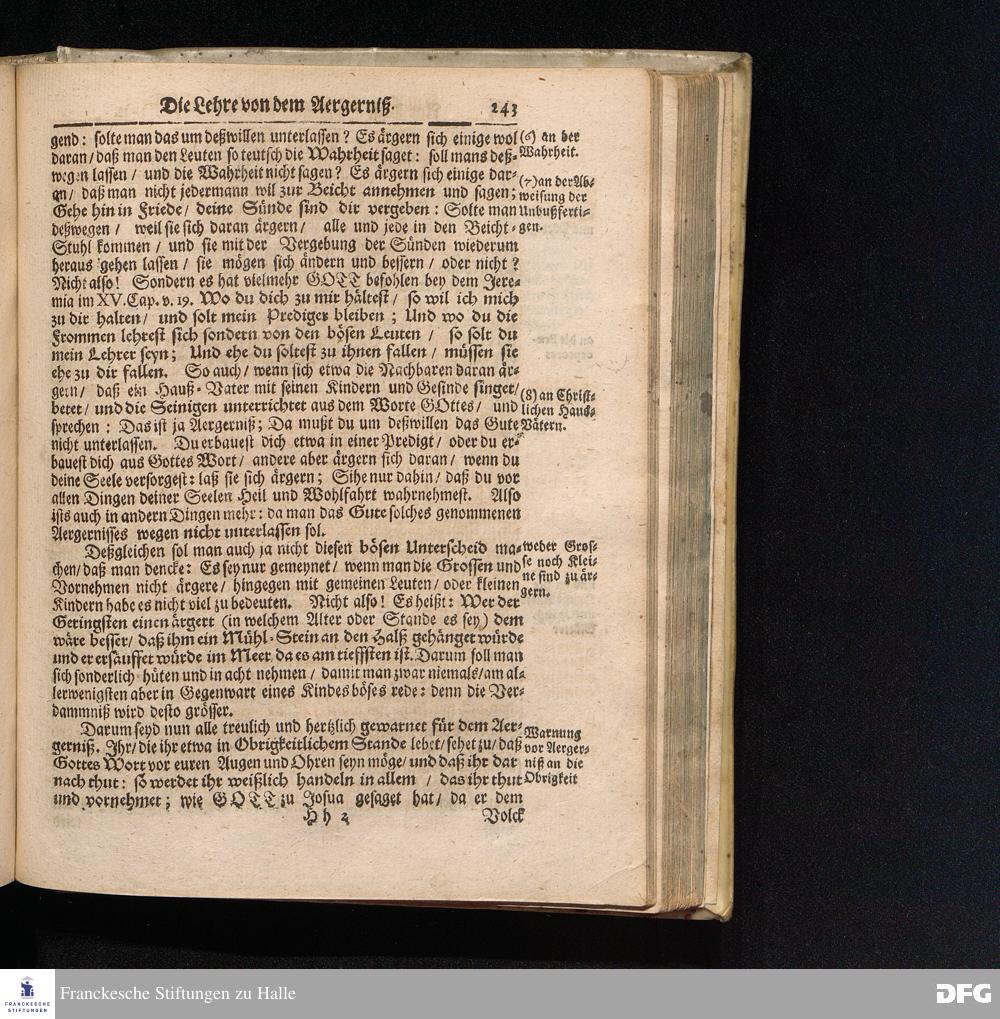 Die Lehre von dem Aergerniß. 243
gend: solte man das um deßwillen unterlassen? Es ärgern sich einige wol
daran/ daß man den Leuten so teutsch die Wahrheit saget: soll mans deß-
wegen lassen/ und die Wahrheit nicht sagen? Es ärgern sich einige dar-
an/ daß man nicht jedermann wil zur Beicht annehmen und sagen;
Gehe hin in Friede/ deine Sünde sind dir vergeben: Solte man
deßwegen/ weil sie sich daran ärgern/ alle und jede in den Beicht-
Stuhl kommen/ und sie mit der Vergebung der Sünden wiederum
heraus gehen lassen/ sie mögen sich ändern und bessern/ oder nicht?
Nicht also! Sondern es hat vielmehr GOTT befohlen bey dem Jere-
mia im XV. Cap. v. 19. Wo du dich zu mir hältest/ so wil ich mich
zu dir halten/ und solt mein Prediger bleiben; Und wo du die
Frommen lehrest sich sondern von den bösen Leuten/ so solt du
mein Lehrer seyn; Und ehe du soltest zu ihnen fallen/ müssen sie
ehe zu dir fallen. So auch/ wenn sich etwa die Nachbaren daran är-
gern/ daß ein Hauß-Vater mit seinen Kindern und Gesinde singet/
betet/ und die Seinigen unterrichtet aus dem Worte GOttes/ und
sprechen: Das ist ja Aergerniß; Da mußt du um deßwillen das Gute
nicht unterlassen. Du erbauest dich etwa in einer Predigt/ oder du er-
bauest dich aus Gottes Wort/ andere aber ärgern sich daran/ wenn du
deine Seele versorgest: laß sie sich ärgern; Sihe nur dahin/ daß du vor
allen Dingen deiner Seelen Heil und Wohlfahrt wahrnehmest. Also
ists auch in andern Dingen mehr: da man das Gute solches genommenen
Aergernisses wegen nicht unterlassen sol.
Deßgleichen sol man auch ja nicht diesen bösen Unterscheid ma-
chen/ daß man dencke: Es sey nur gemeynet/ wenn man die Grossen und
Vornehmen nicht ärgere/ hingegen mit gemeinen Leuten/ oder kleinen
Kindern habe es nicht viel zu bedeuten. Nicht also! Es heißt: Wer der
Geringsten einen ärgert (in welchem Alter oder Stande es sey) dem
wäre besser/ daß ihm ein Mühl-Stein an den Halß gehänget würde
und er ersäuffet würde im Meer da es am tieffsten ist. Darum soll man
sich sonderlich hüten und in acht nehmen/ damit man zwar niemals/ am al-
lerwenigsten aber in Gegenwart eines Kindes böses rede: denn die Ver-
dammniß wird desto grösser.
Darum seyd nun alle treulich und hertzlich gewarnet für dem Aer-
gerniß. Ihr/ die ihr etwa in Obrigkeitlichem Stande lebet/ sehet zu/ daß
Gottes Wort vor euren Augen und Ohren seyn möge/ und daß ihr dar
nach thut: so werdet ihr weißlich handeln in allem/ das ihr thut
und vornehmet; wie GOTT zu Josua gesaget hat/ da er dem
Hh 2 Volck
(6) an der
Wahrheit.
(7) an der Ab-
weisung der
Unbußferti-
gen.
(8) an Christ-
lichen Haus-
Vätern.
weder Gros-
se noch Klei-
ne sind zu är-
gern.
Warnung
vor Aerger-
niß an die
Obrigkeit
FRANCKESCHE
STIFTUNGEN
Franckesche Stiftungen zu Halle
DFG